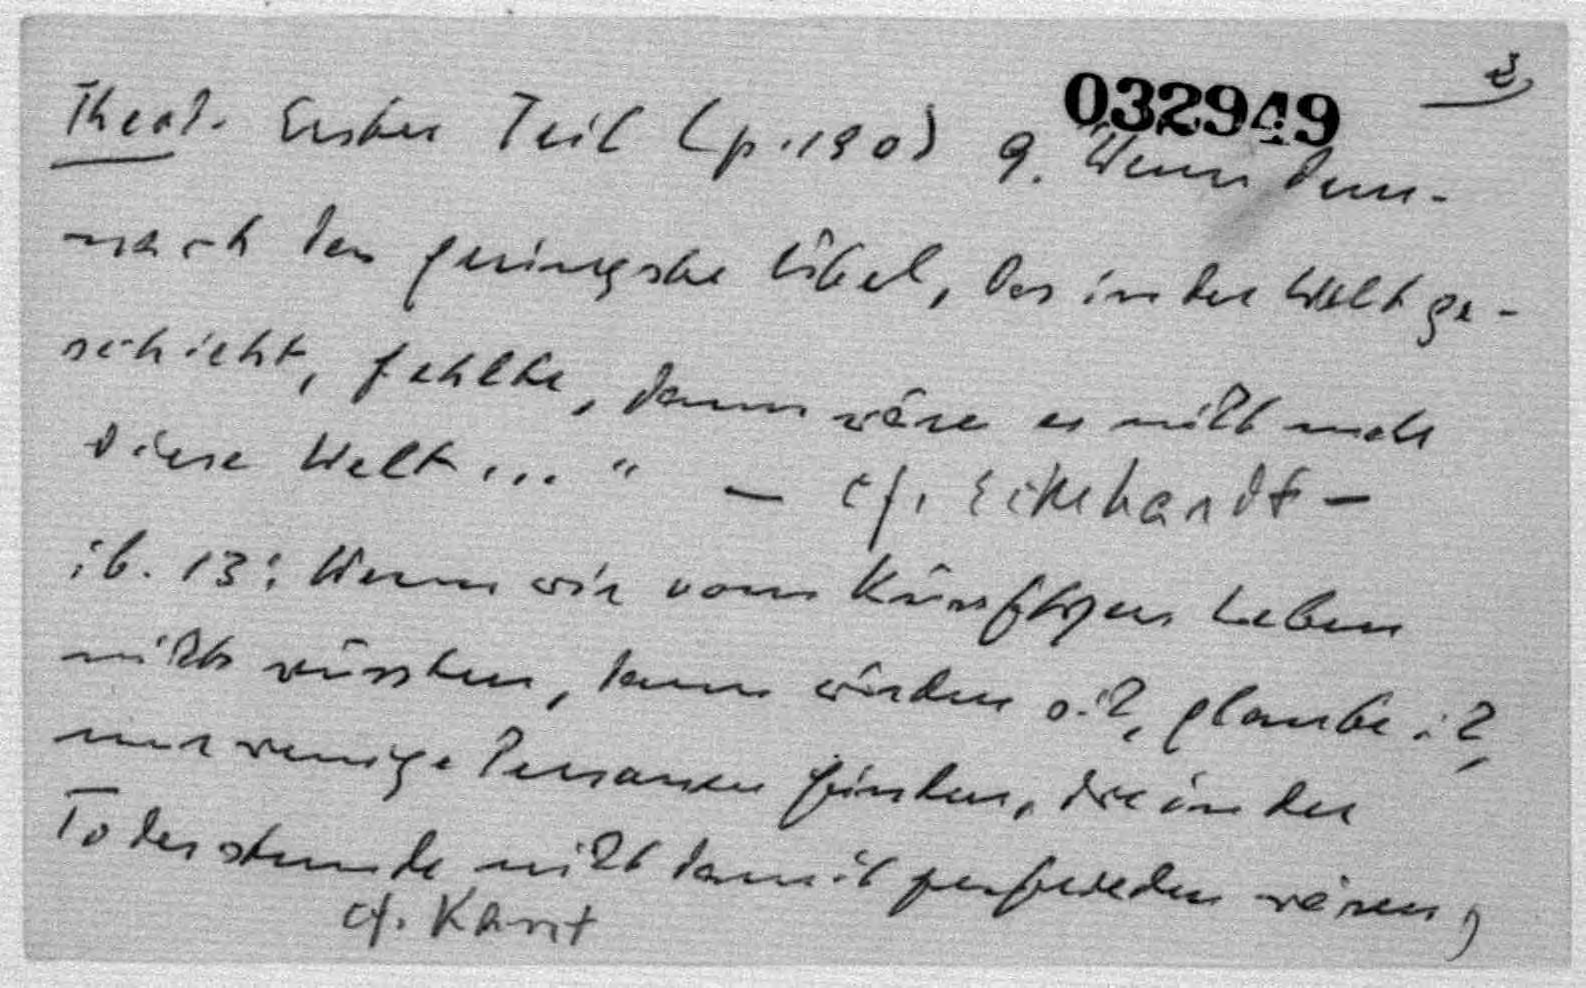 032949
2,
Theod. Erster Teil (p. 190) 9. Wenn dem-
nach das geringste Übel, das in der Welt ge-
schieht, fehlte, dann wäre es nicht mehr
diese Welt..." — cf. Eckhardt —
ib. 13: Wenn wir vom künftigen Leben
nichts wüssten, dann würden sich, glaube ich,
nur wenige Personen finden, die in der
Todesstunde nicht damit zufrieden wären,
cf. Kant